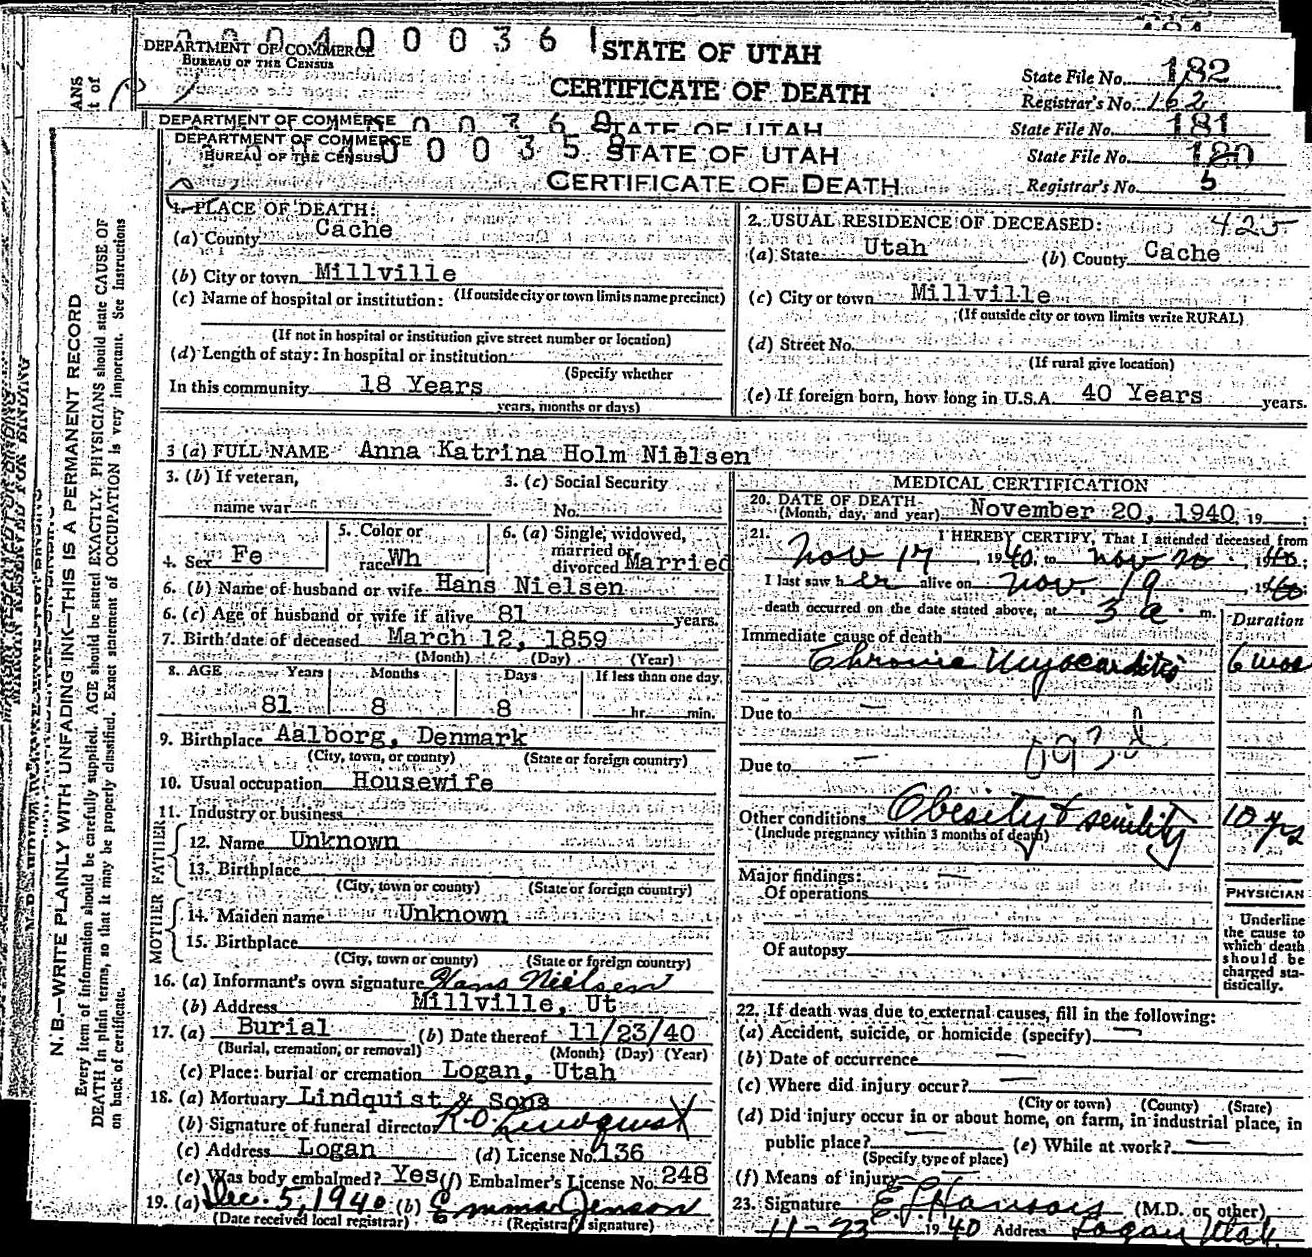 0000400361
DEPARTMENT OF COMMERCE
BUREAU OF THE CENSUS
STATE OF UTAH
CERTIFICATE OF DEATH
State File No. 182
Registrar's No. 162
DEPARTMENT OF COMMERCE
STATE OF UTAH
State File No. 181
DEPARTMENT OF COMMERCE
BUREAU OF THE CENSUS
STATE OF UTAH
CERTIFICATE OF DEATH
State File No. 180
Registrar's No. 5
N. B.—WRITE PLAINLY WITH UNFADING INK—THIS IS A PERMANENT RECORD
Every item of information should be carefully supplied. AGE should be stated EXACTLY. PHYSICIANS should state CAUSE OF
DEATH in plain terms, so that it may be properly classified. Exact statement of OCCUPATION is very important. See instructions
on back of certificate.
1. PLACE OF DEATH:
(a) County Cache
(b) City or town Millville
(c) Name of hospital or institution: (If outside city or town limits name precinct)
(If not in hospital or institution give street number or location)
(d) Length of stay: In hospital or institution
(Specify whether
In this community 18 Years
years, months or days)
2. USUAL RESIDENCE OF DECEASED: 425
(a) State Utah (b) County Cache
(c) City or town Millville
(If outside city or town limits write RURAL)
(d) Street No.
(If rural give location)
(e) If foreign born, how long in U.S.A. 40 Years years.
3 (a) FULL NAME Anna Katrina Holm Nielsen
3. (b) If veteran,
name war
3. (c) Social Security
No.
4. Sex Fe
5. Color or
race Wh
6. (a) Single, widowed,
married or
divorced Married
6. (b) Name of husband or wife Hans Nielsen
6. (c) Age of husband or wife if alive 81 years.
7. Birth date of deceased March 12, 1859
(Month) (Day) (Year)
8. AGE Years Months Days If less than one day
81 8 8 hr. min.
9. Birthplace Aalborg, Denmark
(City, town, or county) (State or foreign country)
10. Usual occupation Housewife
11. Industry or business
FATHER
12. Name Unknown
13. Birthplace
(City, town or county) (State or foreign country)
MOTHER
14. Maiden name Unknown
15. Birthplace
(City, town or county) (State or foreign country)
16. (a) Informant's own signature Hans Nielsen
(b) Address Millville, Ut
17. (a) Burial (b) Date thereof 11/23/40
(Burial, cremation, or removal) (Month) (Day) (Year)
(c) Place: burial or cremation Logan, Utah
18. (a) Mortuary Lindquist & Sons
(b) Signature of funeral director R O Lindquist
(c) Address Logan (d) License No. 136
(e) Was body embalmed? Yes (f) Embalmer's License No. 248
19. (a) Dec. 5, 1940 (b) Emma Jenson
(Date received local registrar) (Registrar signature)
MEDICAL CERTIFICATION
20. DATE OF DEATH
(Month, day, and year) November 20, 1940, 19
21. I HEREBY CERTIFY, That I attended deceased from
Nov 17 1940 to Nov 20, 1940;
I last saw her alive on Nov. 19, 1940;
death occurred on the date stated above, at 3 a. m.
Duration
Immediate cause of death
Chronic Myocarditis 6 mos
Due to —
093d
Due to —
Other conditions Obesity & senility 10 yrs
(Include pregnancy within 3 months of death)
Major findings:
Of operations —
Of autopsy —
PHYSICIAN
Underline
the cause to
which death
should be
charged sta-
tistically.
22. If death was due to external causes, fill in the following:
(a) Accident, suicide, or homicide (specify) —
(b) Date of occurrence —
(c) Where did injury occur? —
(City or town) (County) (State)
(d) Did injury occur in or about home, on farm, in industrial place, in
public place? — (e) While at work? —
(Specify type of place)
(f) Means of injury
23. Signature (M.D. or other)
11-23 1940 Address Logan Utah.